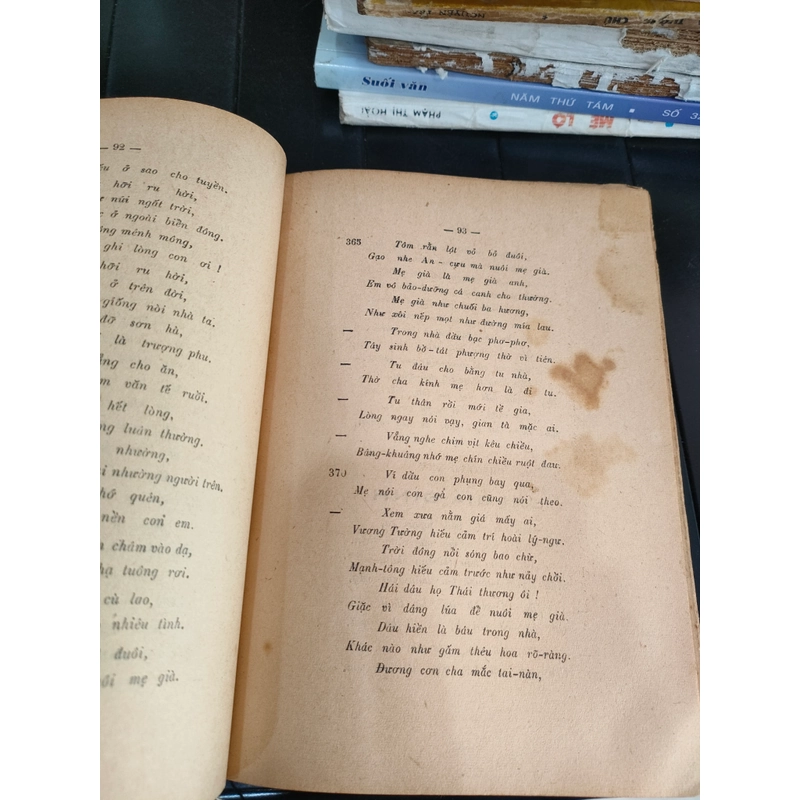 NGUYÊN
CHỦ
Suối văn
NĂM THỨ TÁM • SỐ 3
PHẠM THỊ HOÀI
MÊ LỘ
— 92 —
ở sao cho tuyền.
hỡi ru hời,
núi ngất trời,
ở ngoài biển đông.
mênh mông,
ghi lòng con ơi !
hỡi ru hời,
ở trên đời,
giống nòi nhà ta.
đỡ sơn hà,
là trượng phu.
cho ăn,
văn tế ruồi.
hết lòng,
luân thường.
nhường,
nhường người trên.
quên,
nền con em.
châm vào dạ,
tuông rơi.
cù lao,
nhiêu tình.
đuôi,
mẹ già.
— 93 —
365 Tôm rằn lột vỏ bỏ đuôi,
Gạo nhe An-cựu mà nuôi mẹ già.
Mẹ già là mẹ già anh,
Em vô bảo-dưỡng cá canh cho thường.
Mẹ già như chuối ba hương,
Như xôi nếp mọt như đường mía lau.
— Trong nhà đầu bạc phơ-phơ,
Tây sinh bồ-tát phượng thờ vì tiên.
— Tu đâu cho bằng tu nhà,
Thờ cha kính mẹ hơn là đi tu.
— Tu thân rồi mới tề gia,
Lòng ngay nói vạy, gian tà mặc ai.
— Vẳng nghe chim vịt kêu chiều,
Bâng-khuâng nhớ mẹ chín chiều ruột đau.
370 Ví dầu con phụng bay qua,
Mẹ nói con gà con cũng nói theo.
— Xem xưa nằm giá mấy ai,
Vương Tường hiếu cảm trí hoài lý-ngư.
Trời đông nồi sóng bao chừ,
Mạnh-tông hiếu cảm trước như nảy chồi.
Hái dâu họ Thái thương ôi !
Giặc vì dâng lúa để nuôi mẹ già.
Dâu hiền là báu trong nhà,
Khác nào như gấm thêu hoa rõ-ràng.
Đương cơn cha mắc tai-nàn,